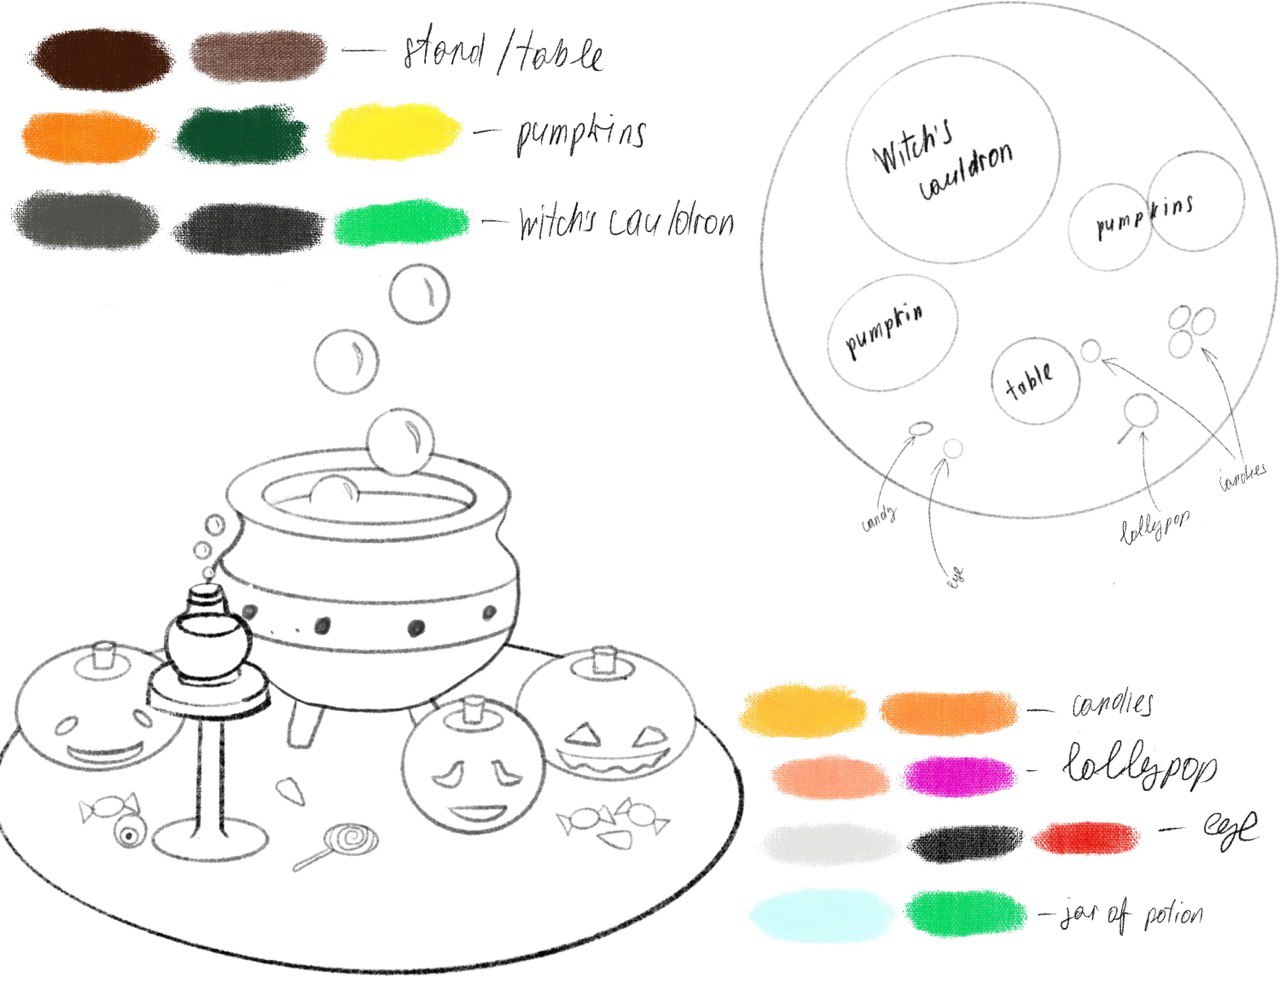 stand/table
pumpkins
witch's cauldron
Witch's
cauldron
pumpkins
pumpkin
table
candy
eye
lollypop
candies
candies
lollypop
eye
jar of potion